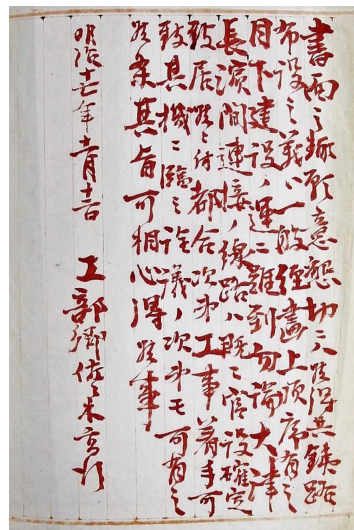 書面之趣願意懇切ニハ候得共鉄路
布設之義ハ一般経画上順序有之
目下建設ノ運ニ難到勿論大津
長濱間連接ノ線路ハ既ニ官設確定
致居候ニ付都合次第工事着手可
致其機ニ臨ミ詮議ノ次第モ可有之
候条其旨可相心得候事
明治十七年 月 工部卿佐々木高行